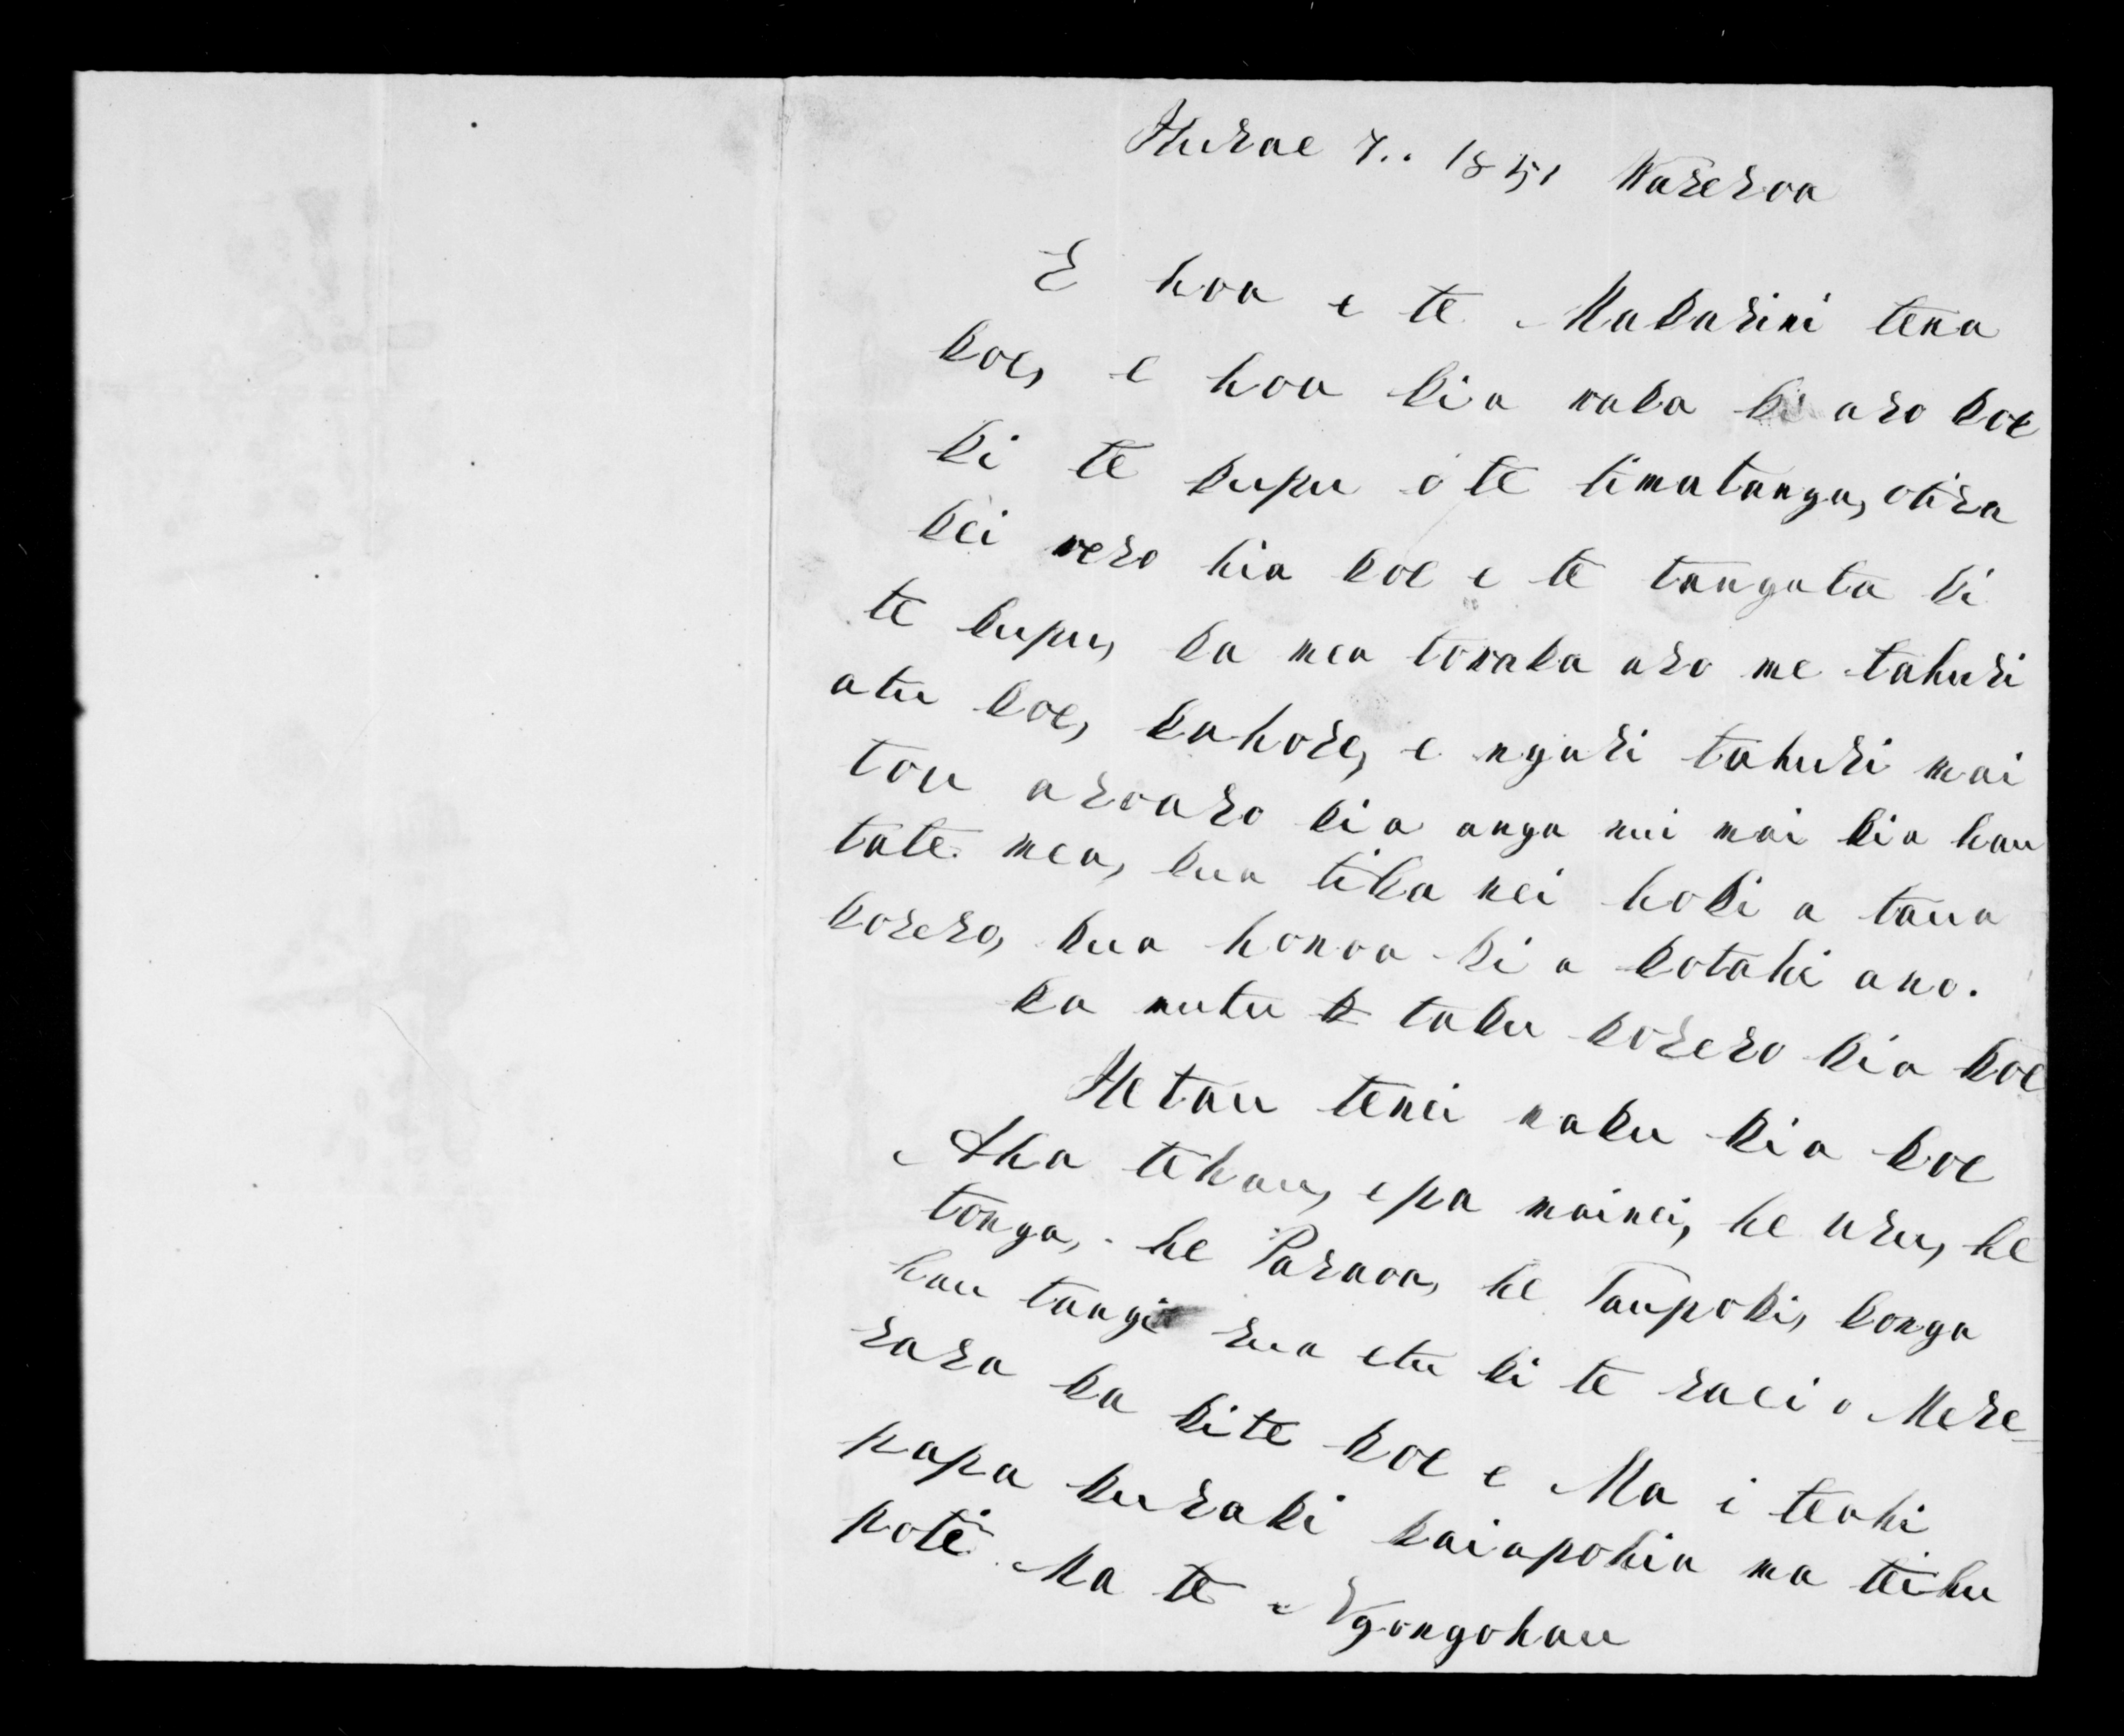 Hurae 7.. 1851 Wareroa
E hoa e te Makarini tena
koe, e hoa kia waka ki aro koe
ki te kupu o te timatanga, otira
kei wero hia koe e te tangata ki
te kupu, ka mea towaka aro me tahuri
atu koe, kahore, e ngari tahuri mai
tou aroaro kia anga nui mai kia hau
tate mea, kua tika nei hoki a taua
korero, kua honoa ki a kotahi ano.
ka mutu taku korero kia koe
He tau tenei naku kia koe
Aha tehau, e pa mainei, he uru, he
tonga, he Paraoa, he Taupoki, konga
hau tangi rua etu ki te rae i o Mere-
rara ka kite koe e Ma i teahi
papa kuraki kaiapohia ma teihu
pote Ma te Ngongohau